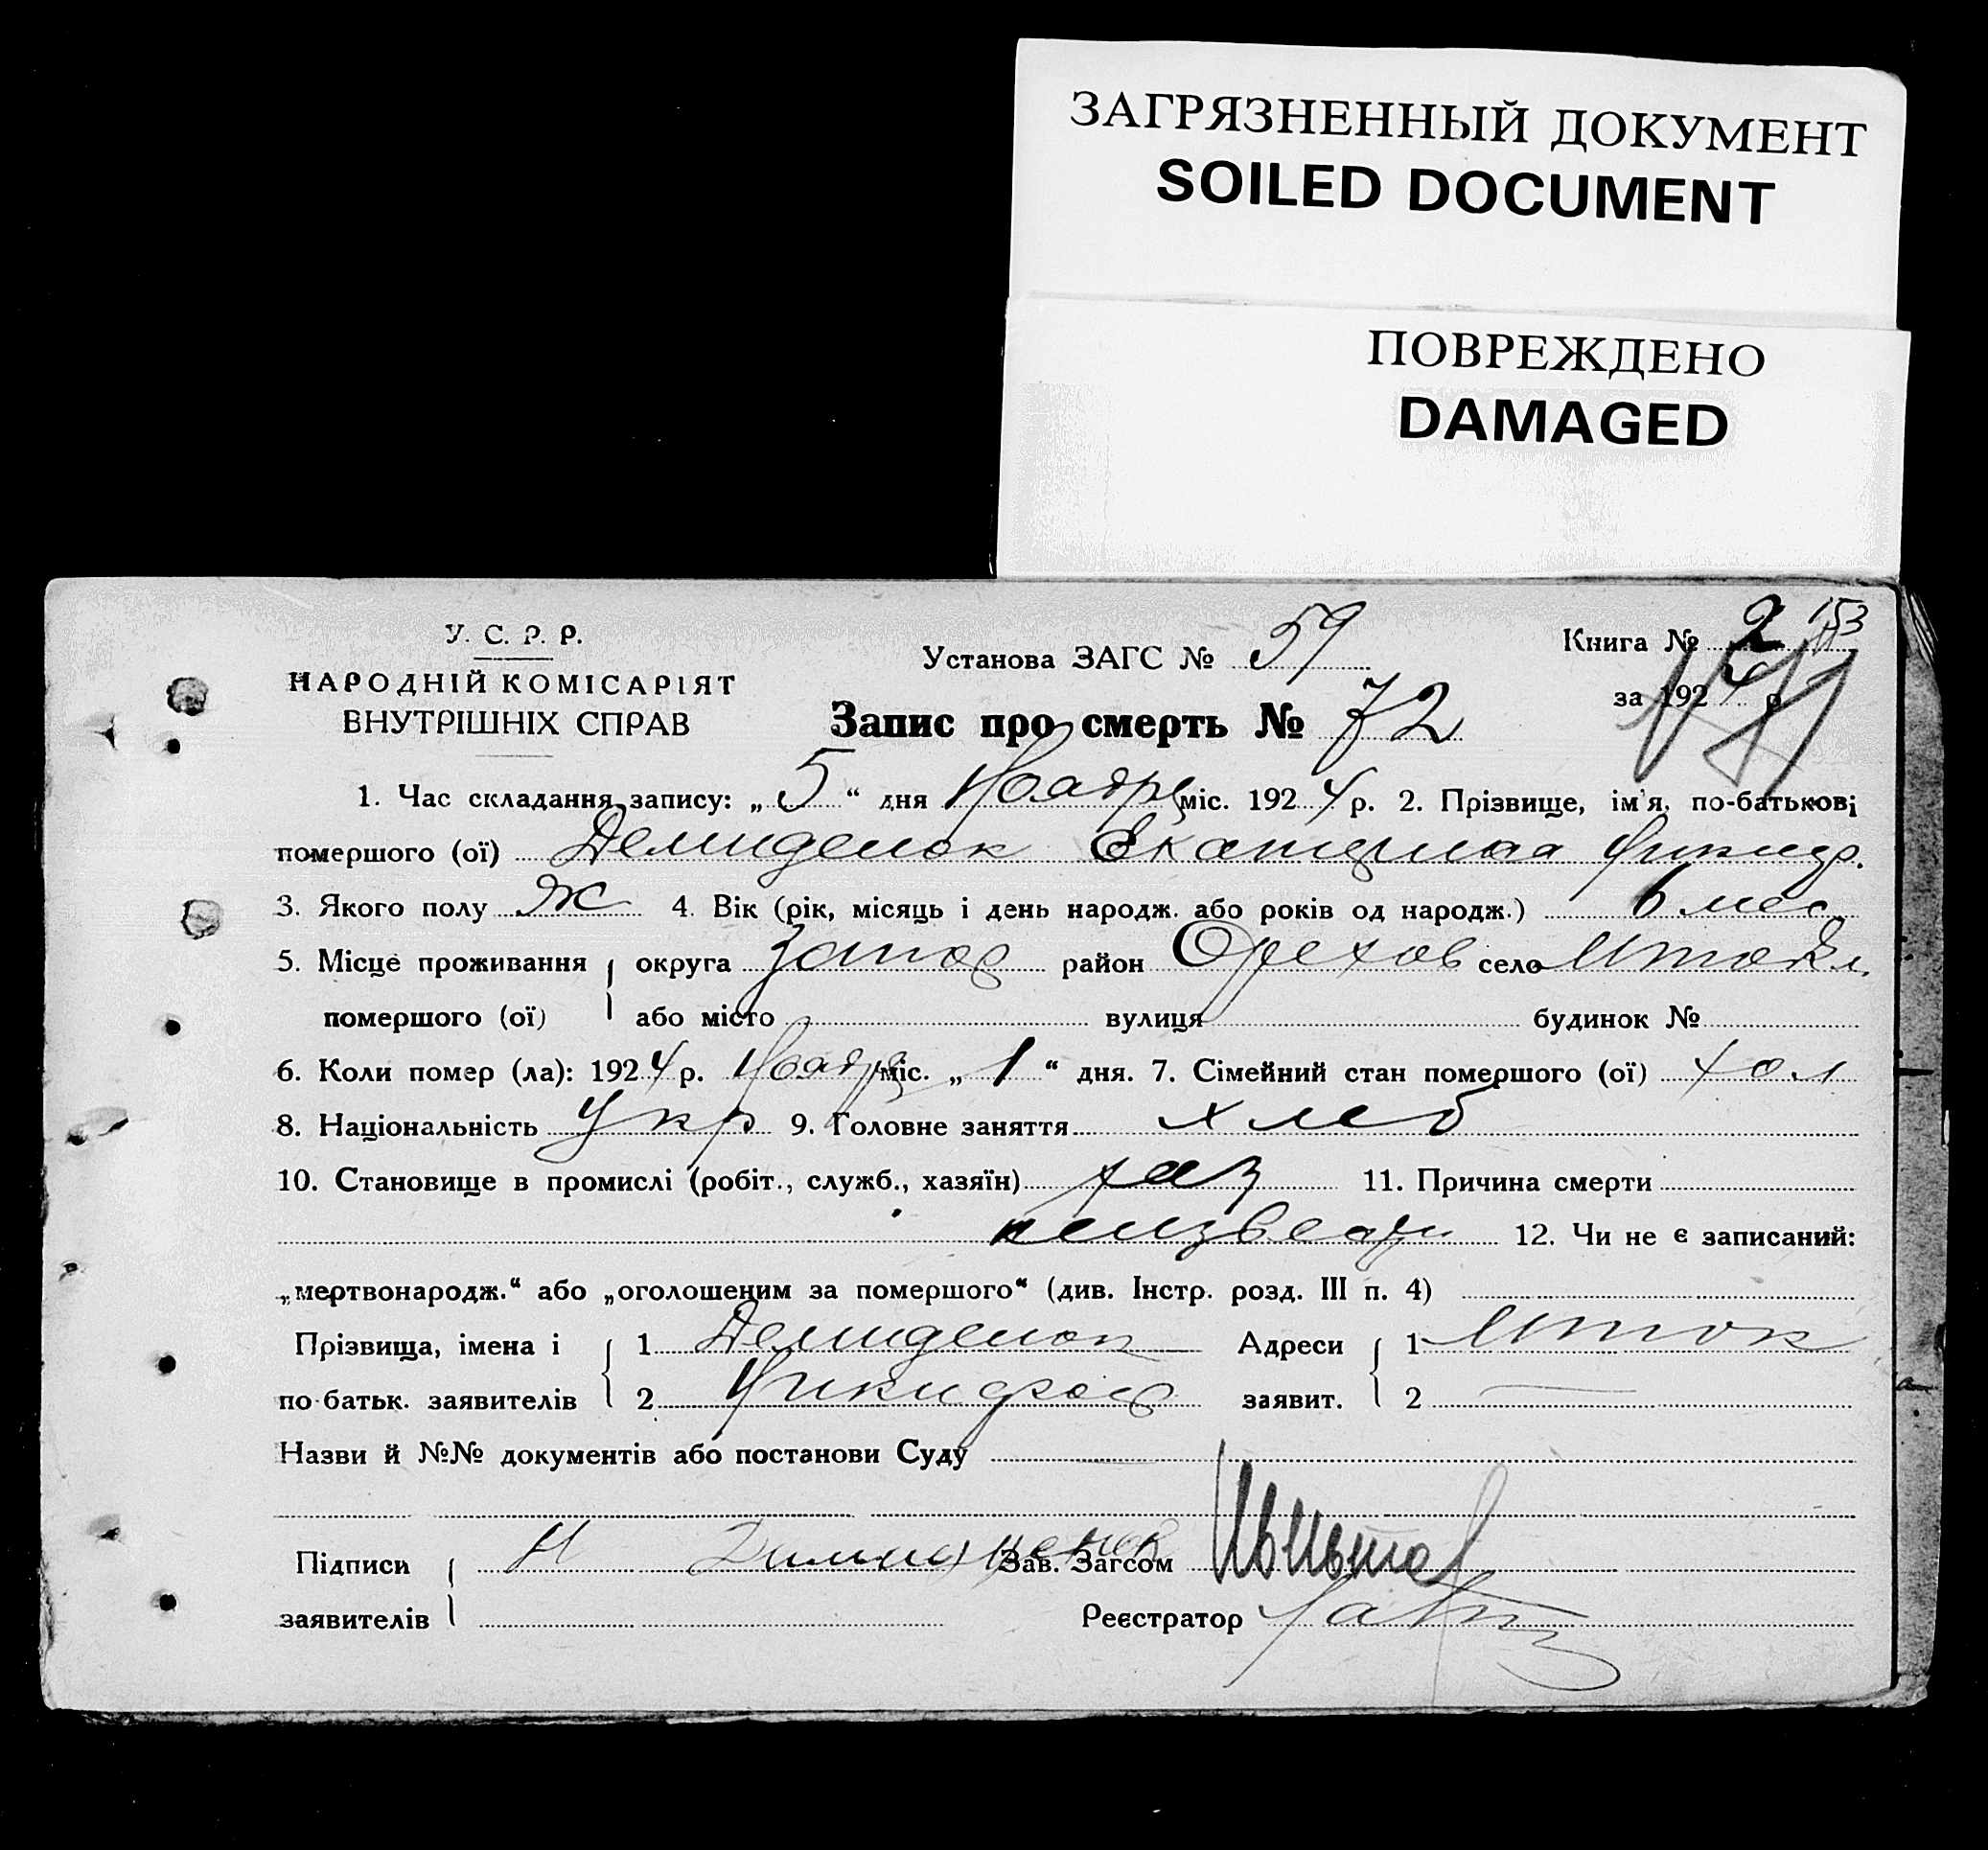 ЗАГРЯЗНЕННЫЙ ДОКУМЕНТ
SOILED DOCUMENT
ПОВРЕЖДЕНО
DAMAGED
У. С. Р. Р.
НАРОДНІЙ КОМІСАРІЯТ
ВНУТРІШНІХ СПРАВ
Установа ЗАГС № 59
Книга № 2 153
за 1924 р.
Запис про смерть № 72
1. Час складання запису: „5“ дня Ноября міс. 1924 р. 2. Прізвище, ім'я, по-батькові
помершого (ої) Демиденок Екатерина Никифр.
3. Якого полу Ж 4. Вік (рік, місяць і день народж. або років од народж.) 6 мес
5. Місце проживання округа Запор район Орехов село
помершого (ої) або місто вулиця будинок №
6. Коли помер (ла): 1924 р. Ноября міс. „1“ дня. 7. Сімейний стан помершого (ої) хол
8. Національність Укр 9. Головне заняття хлеб
10. Становище в промислі (робіт., служб., хазяїн) хаз 11. Причина смерти
неизвестн 12. Чи не є записаний:
„мертвонародж.“ або „оголошеним за помершого“ (див. Інстр. розд. III п. 4)
Прізвища, імена і 1 Демиденок Адреси 1
по-батьк. заявителів 2 Никифор заявит. 2 —
Назви й №№ документів або постанови Суду
Підписи Н Зав. Загсом
заявителів Реєстратор